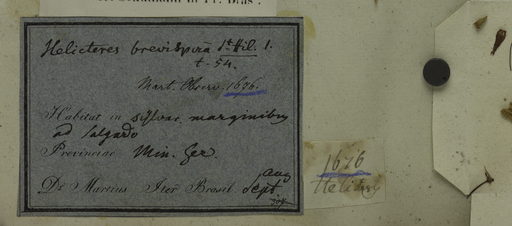 Helicteres brevispira St. Hil. 1.
t. 54.
Mart. Observ. 1696.
Habitat in sylvar. marginibus
ad Salgado
Provinciae Min. Ger.
Aug
Dr Martius Iter Brasil. Sept.
1676